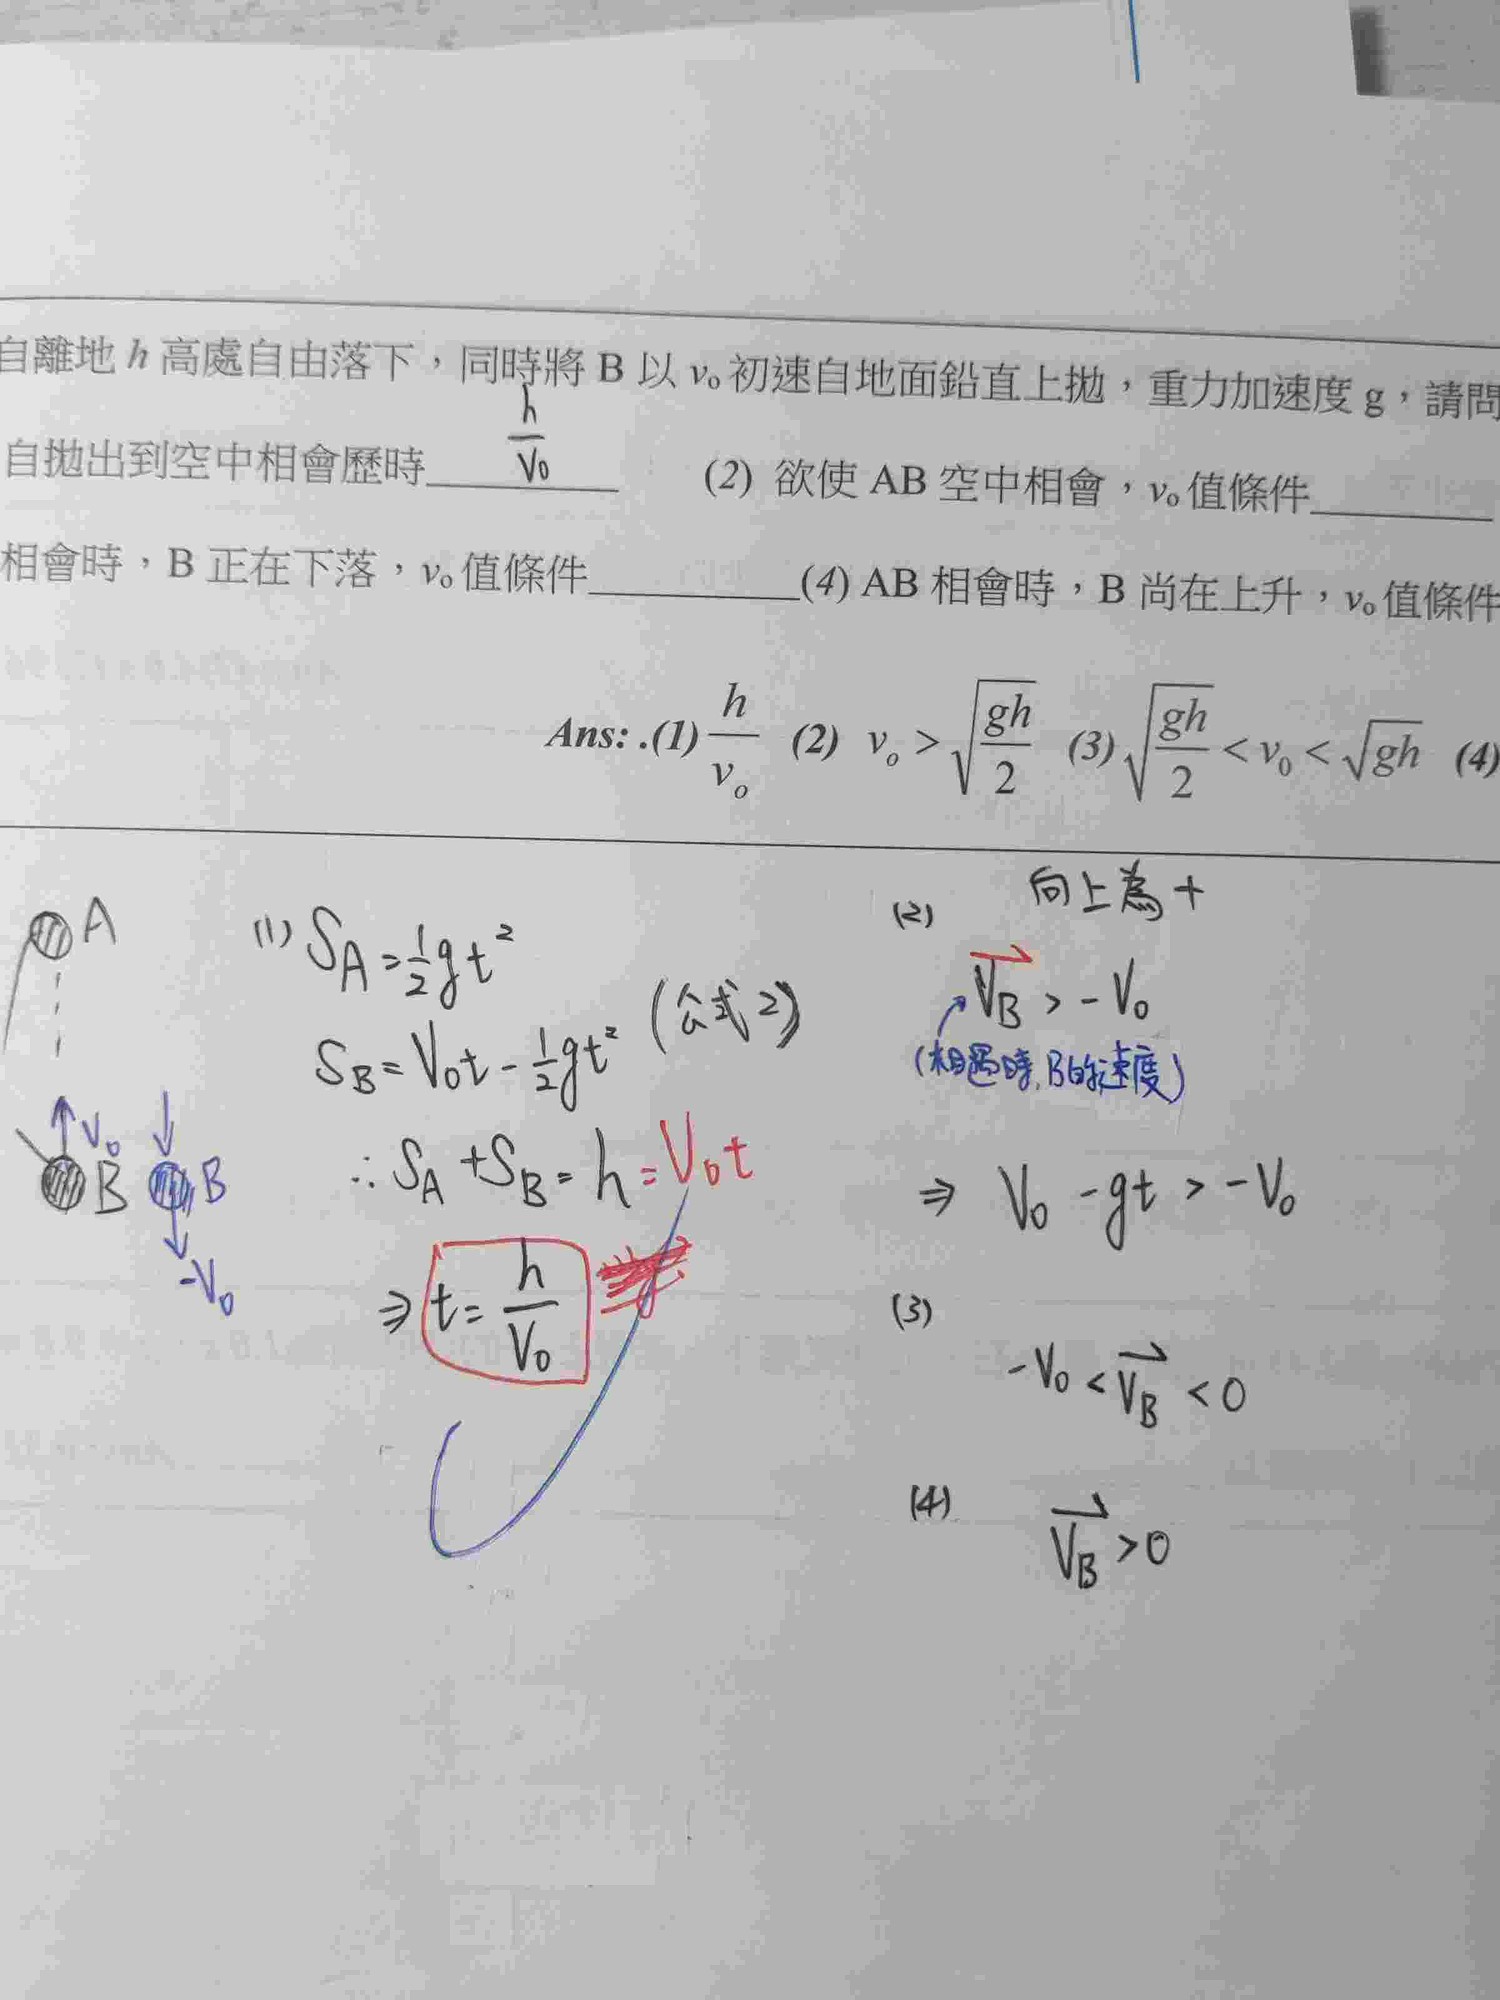 自離地 h 高處自由落下，同時將 B 以 v₀ 初速自地面鉛直上拋，重力加速度 g，請問
自拋出到空中相會歷時 h/V₀ (2) 欲使 AB 空中相會，v₀ 值條件
相會時，B 正在下落，v₀ 值條件 (4) AB 相會時，B 尚在上升，v₀ 值條件
Ans: .(1) h/vₒ (2) vₒ > √(gh/2) (3) √(gh/2) < v₀ < √gh (4)
A
V₀
B
B
-V₀
(1) S_A = ½gt²
S_B = V₀t - ½gt² (公式2)
∴ S_A + S_B = h = V₀t
⇒ t = h/V₀
(2) 向上為 +
V_B > -V₀
(相遇時, B的速度)
⇒ V₀ - gt > -V₀
(3)
-V₀ < V_B < 0
(4)
V_B > 0